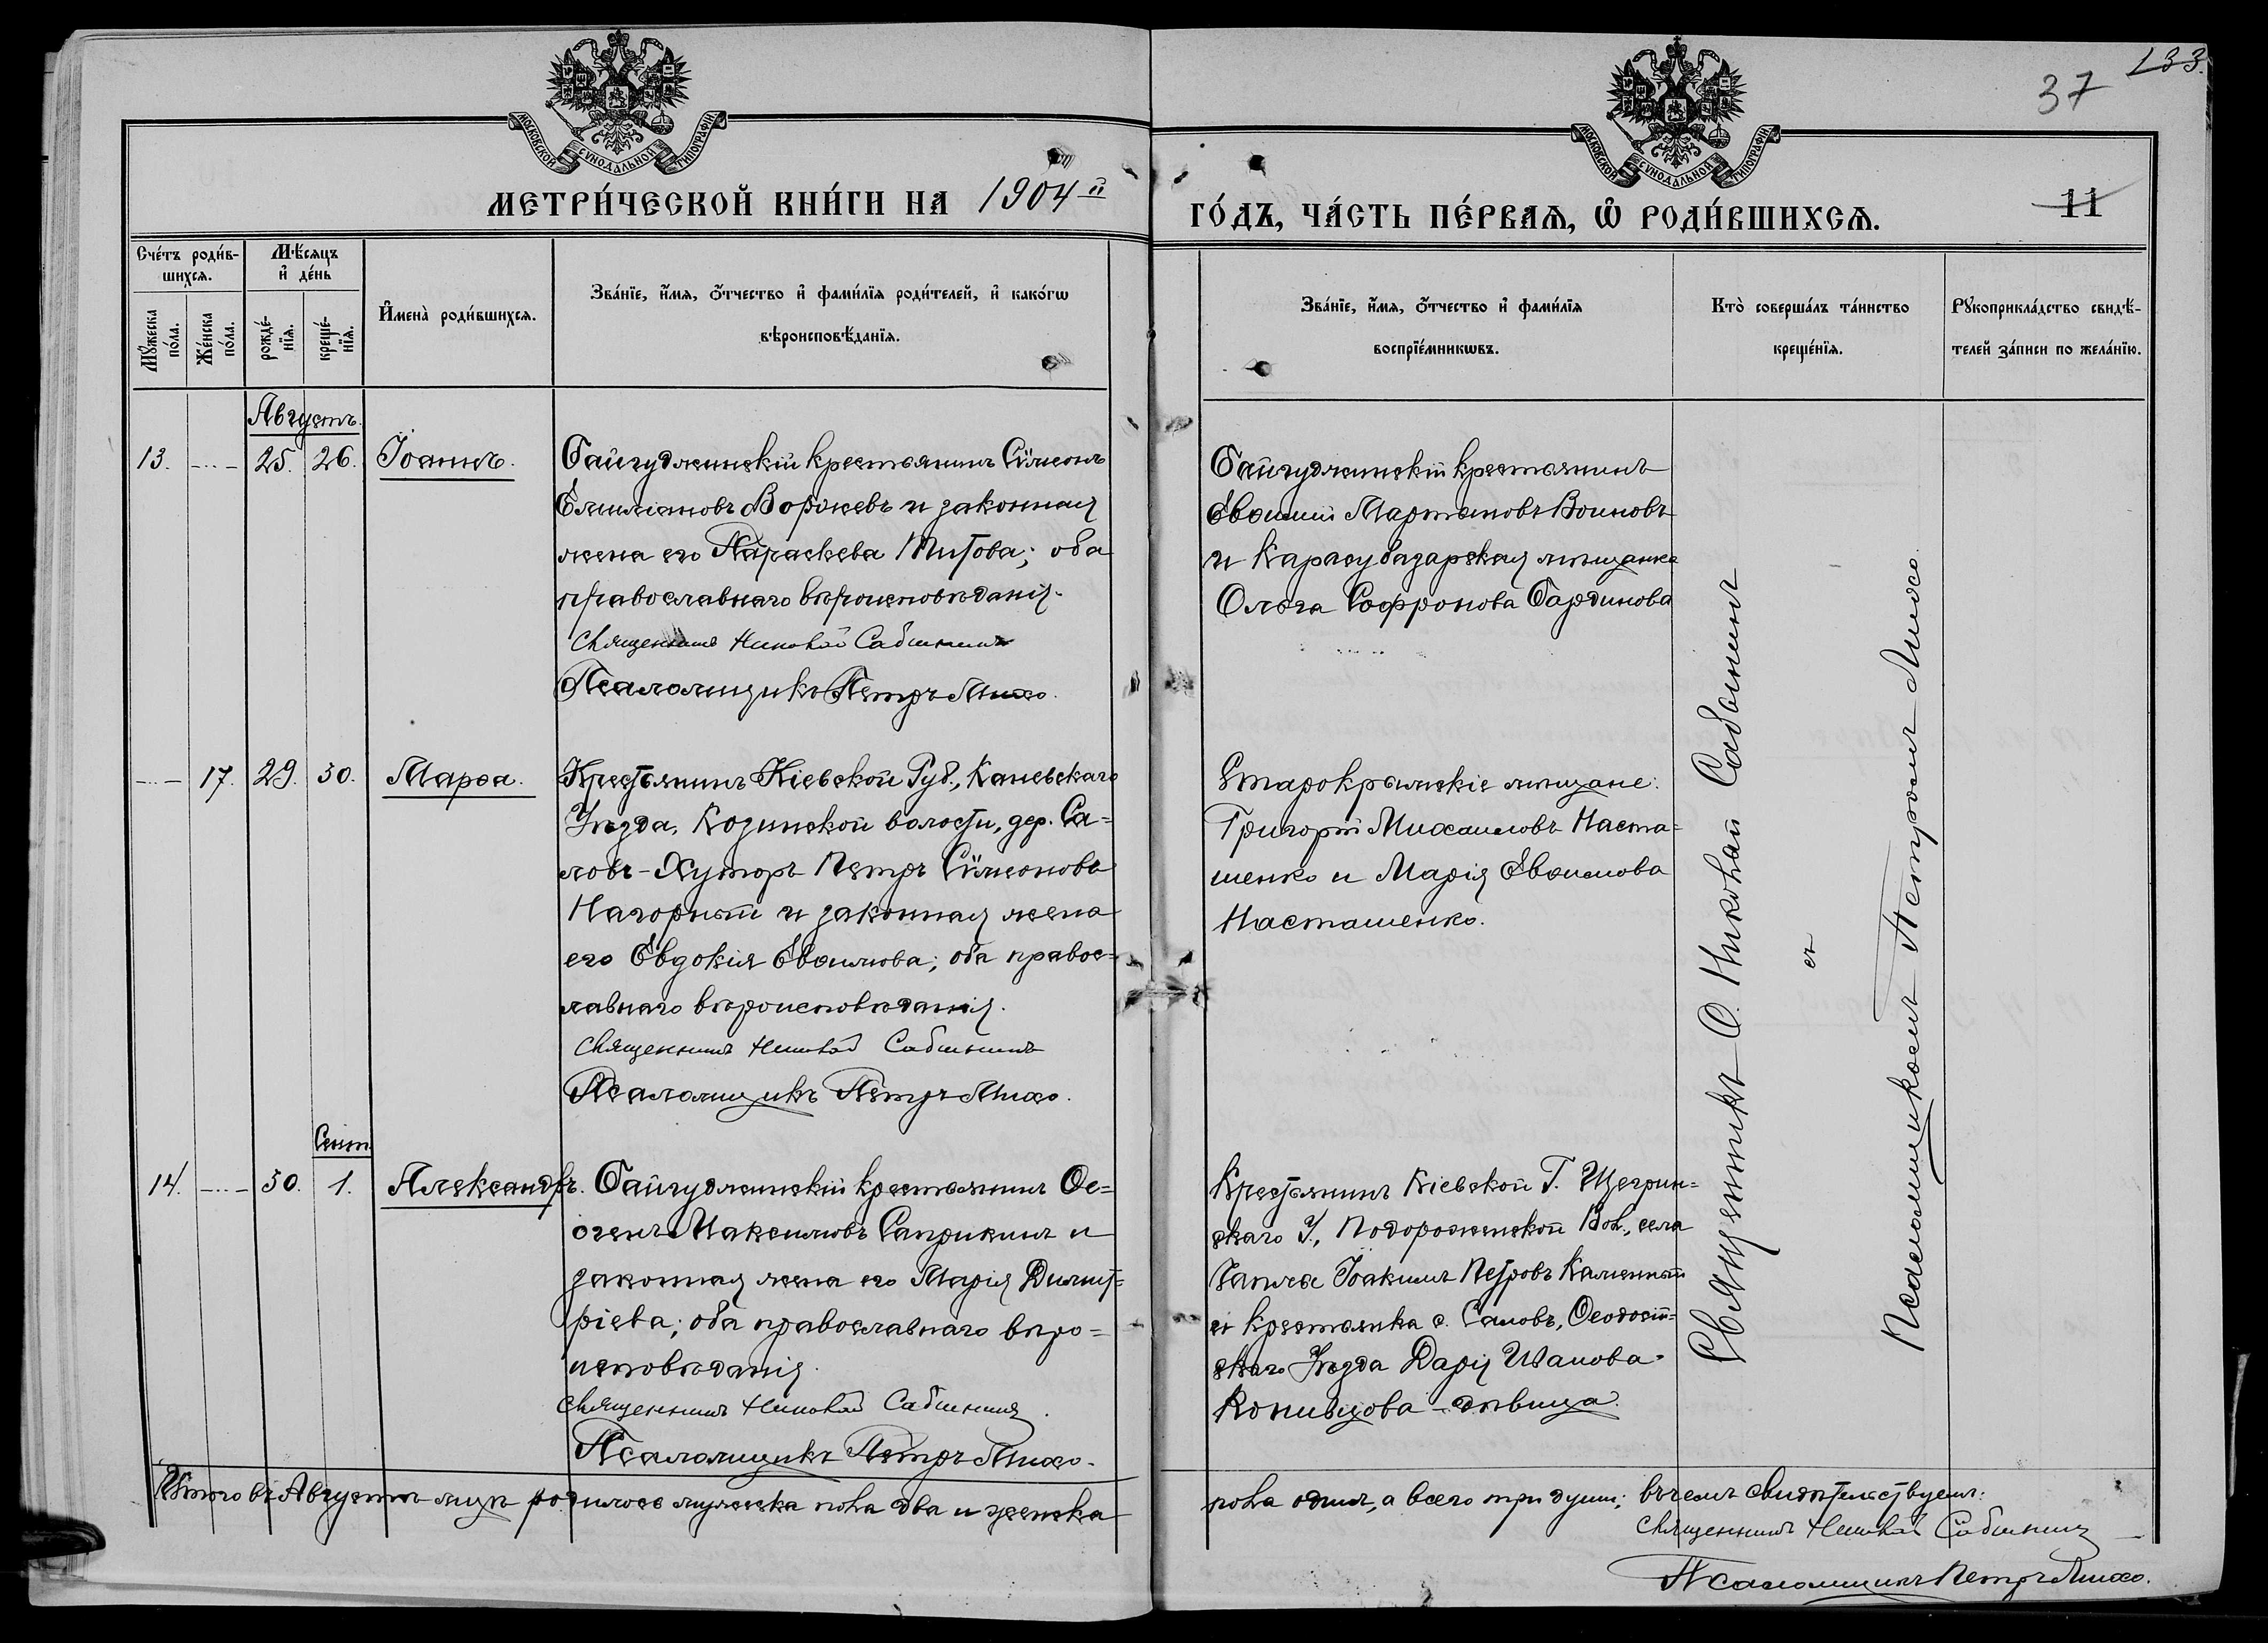 133.
37
МОСКОВСКОЙ СѴНОДАЛЬНОЙ ТИПОГРАФІИ
МОСКОВСКОЙ СѴНОДАЛЬНОЙ ТИПОГРАФІИ
МЕТРИ́ЧЕСКОЙ КНИ́ГИ НА 1904й
ГО́ДЪ, ЧА́СТЬ ПЕ́РВАЯ, Ѽ РОДИ́ВШИХСЯ.
11
Сче́тъ роди́в-
шихся.
Мѣ́сяцъ
и҆ де́нь
Мꙋ́жеска по́ла.
Же́нска по́ла.
рожде́-
нїя.
креще́-
нїя.
И҆мена̀ роди́вшихся.
Зва́нїе, и҆́мя, о҆́тчество и҆ фами́лїя роди́телей, и҆ како́гѡ
вѣроисповѣ́данїя.
Зва́нїе, и҆́мя, о҆́тчество и҆ фами́лїя
воспрїе́мникѡвъ.
Кто̀ соверша́лъ та́инство
креще́нїя.
Рꙋкоприкла́дство свидѣ́-
телей за́писи по жела́нїю.
Августъ.
13. 25. 26. Іоаннъ.
Байгуджинскій крестьянинъ Сѵмеонъ
Емиліановъ Воржевъ и законная
жена его Параскева Титова; оба
православнаго вѣроисповѣданія.
Священникъ Николай Сабининъ
Псаломщикъ Петръ Михо.
Байгуджинскій крестьянинъ
Евѳимій Мартыновъ Воиновъ
и Карасубазарская мѣщанка
Ольга Софронова Бардинова
17. 29. 30. Марѳа.
Крестьянинъ Кіевской Губ., Каневскаго
Уѣзда, Козинской волости, дер. Са-
ловъ-Хуторъ Петръ Сѵмеоновъ
Нагорный и законная жена
его Евдокія Евѳимова; оба правос-
лавнаго вѣроисповѣданія.
Священникъ Николай Сабининъ
Псаломщикъ Петръ Михо.
Старокрымскіе мѣщане:
Григорій Михаиловъ Наста-
шенко и Марія Евѳимова
Насташенко.
Сент.
14. 30. 1. Александръ.
Байгуджинскій крестьянинъ Ѳе-
огенъ Максимовъ Саприкинъ и
законная жена его Марія Димит-
ріева; оба православнаго вѣро-
исповѣданія.
Священникъ Николай Сабининъ
Псаломщикъ Петръ Михо.
Крестьянинъ Кіевской Г. Щегрин-
скаго У., Подорожненской Вол., села
Іоакимъ Петровъ Каменный
и крестьянка с. Саловъ, Ѳеодосій-
скаго Уѣзда Дарія Иванова
Копивцова - дѣвица.
Священникъ О. Николай Сабининъ
съ
Псаломщикомъ Петромъ Михо
Итого въ Августѣ мцѣ родилось мужеска пола два и женска
пола одинъ, а всего три души; въ чемъ свидѣтельствуемъ:
Священникъ Николай Сабининъ
Псаломщикъ Петръ Михо.